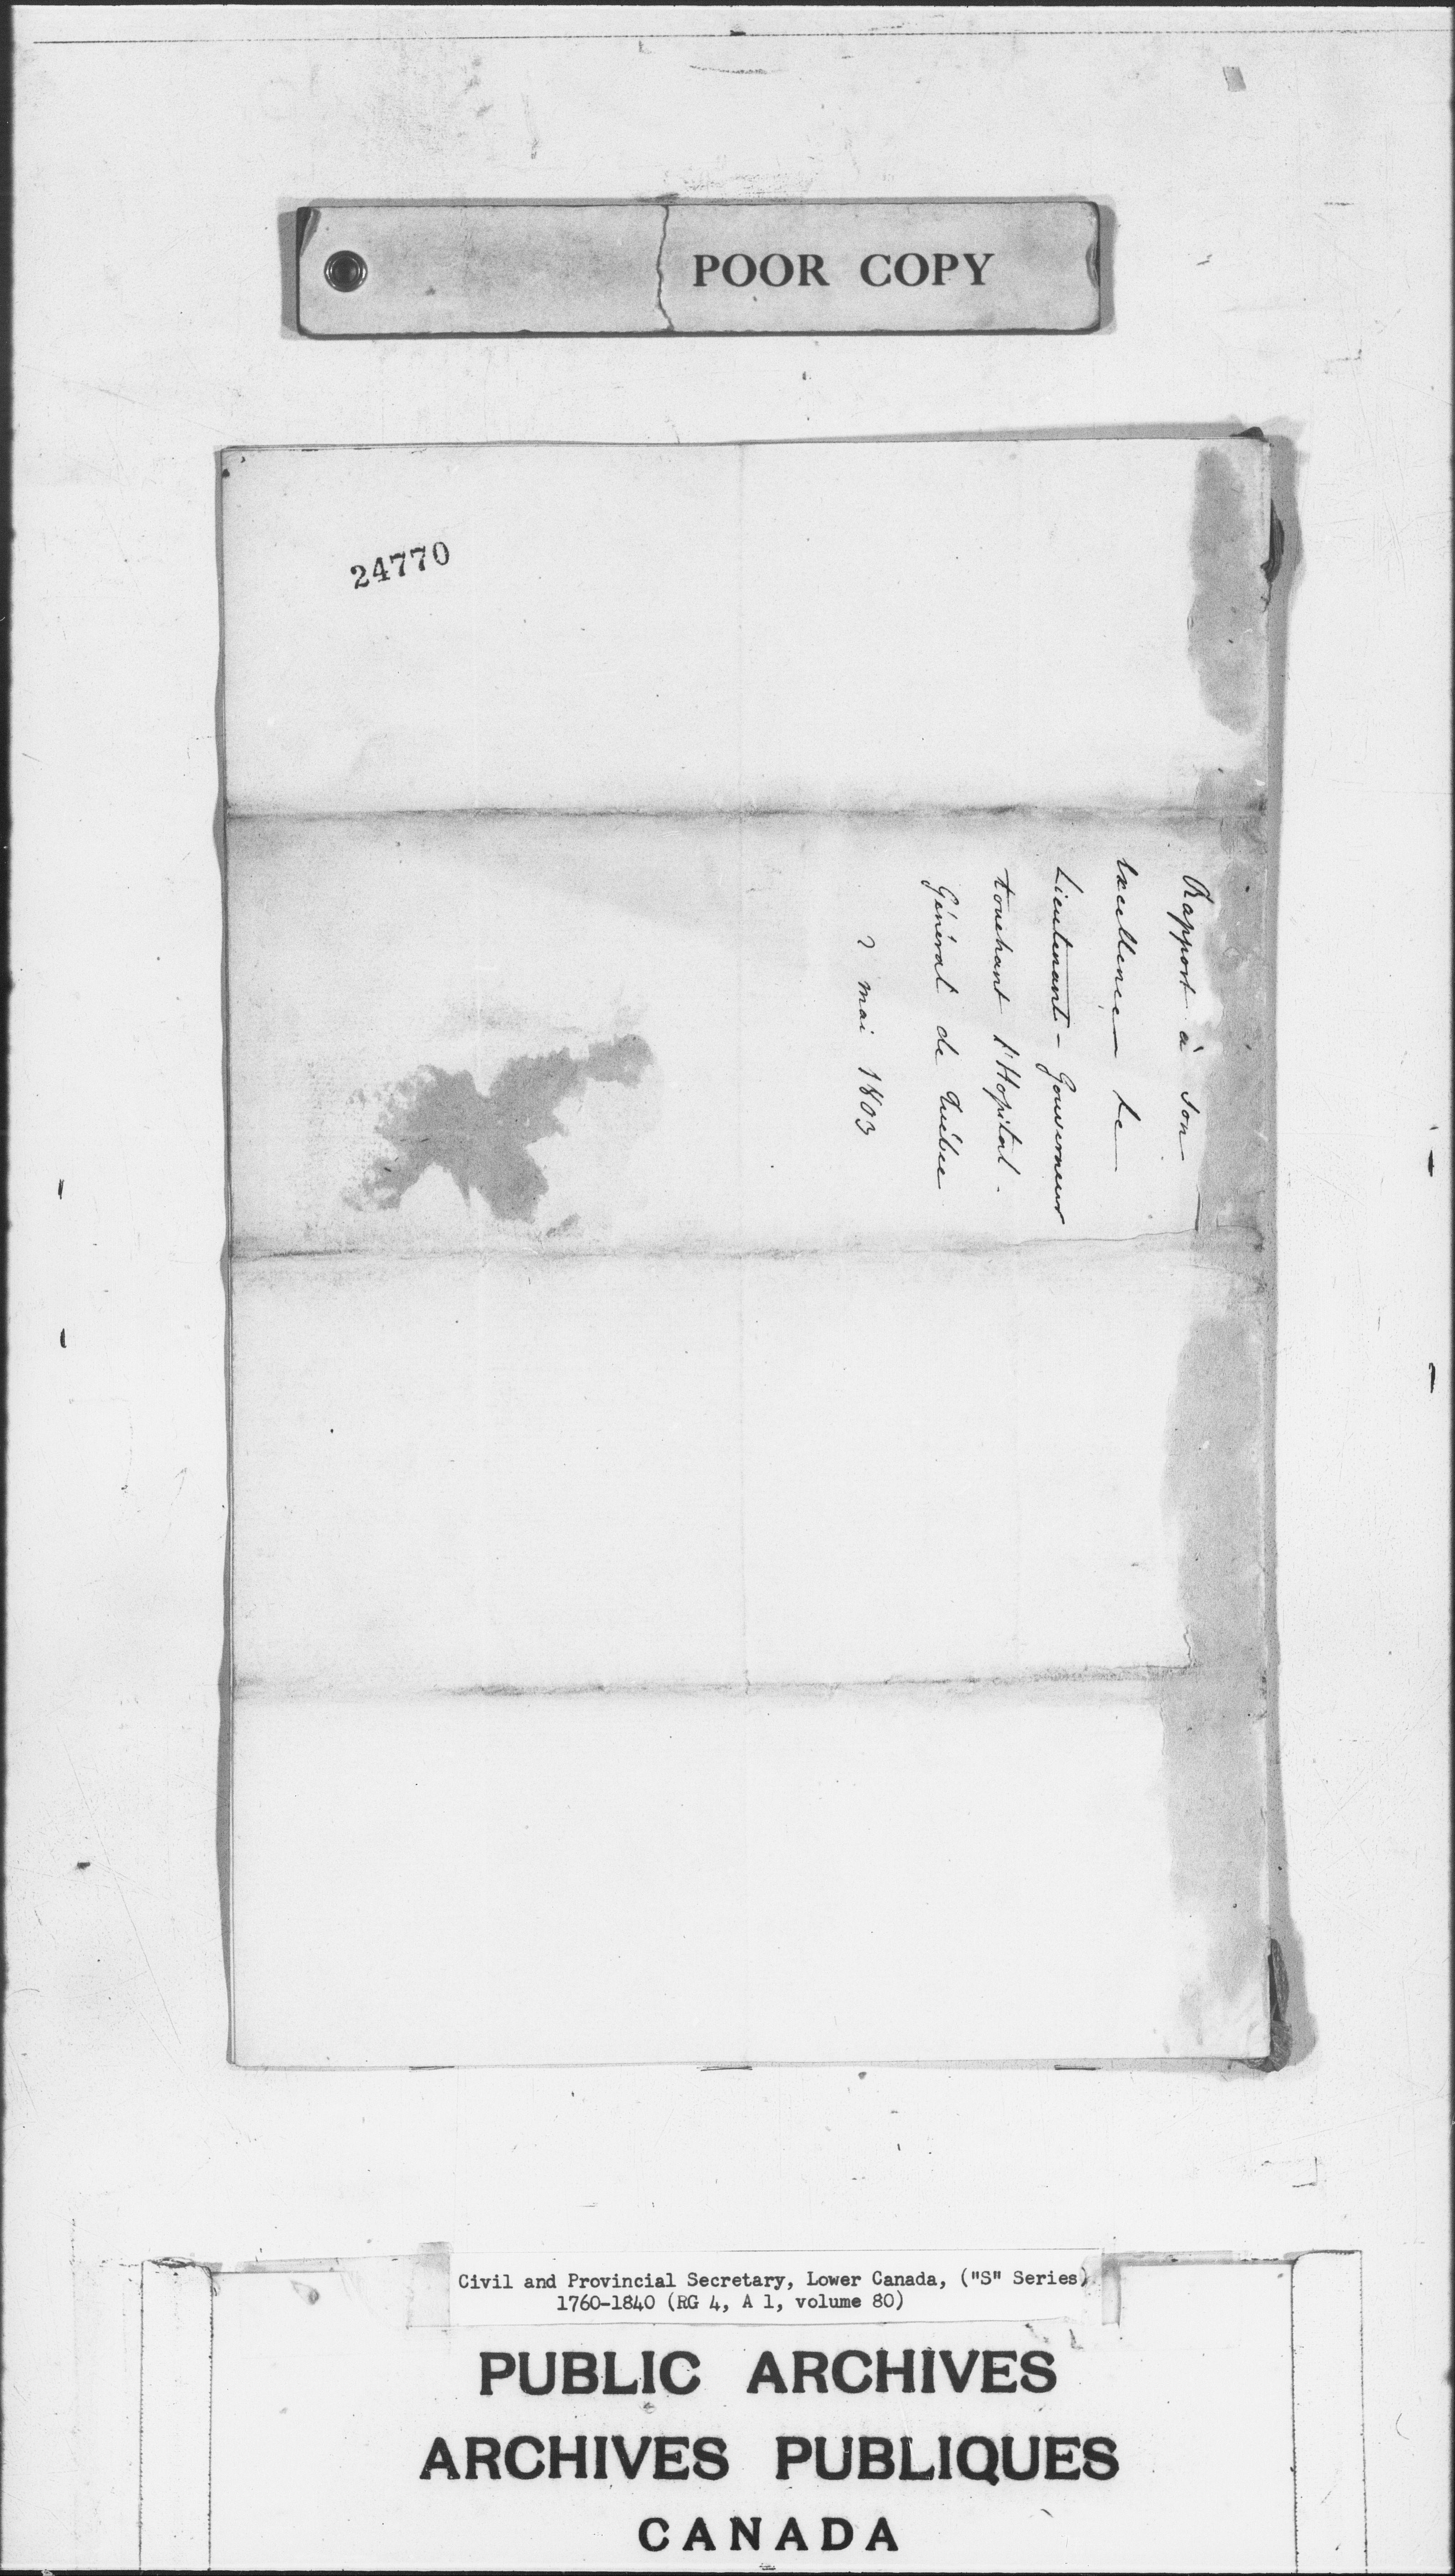 POOR COPY
24770
Rapport à son
Excellence le
Lieutenant-Gouverneur
touchant l'Hopital-
Général de Québec
2 mai 1803
Civil and Provincial Secretary, Lower Canada, ("S" Series)
1760-1840 (RG 4, A 1, volume 80)
PUBLIC ARCHIVES
ARCHIVES PUBLIQUES
CANADA